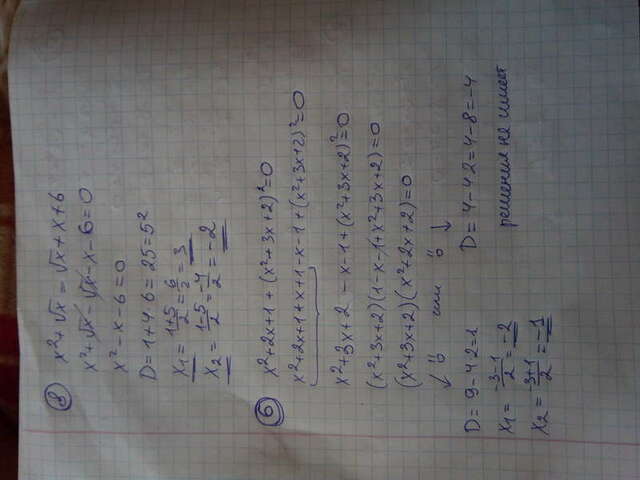 8 x²+√x = √x+x+6
x²+√x-√x-x-6=0
x²-x-6=0
D=1+4·6=25=5²
x₁=(1+5)/2=6/2=3
x₂=(1-5)/2=-4/2=-2
6 x²+2x+1+(x²+3x+2)²=0
x²+2x+1+x+1-x-1+(x²+3x+2)²=0
x²+3x+2-x-1+(x²+3x+2)²=0
(x²+3x+2)(1-x-1+x²+3x+2)=0
(x²+3x+2)(x²+2x+2)=0
↓ 0 или 0 ↓
D=9-4·2=1 D=4-4·2=4-8=-4
x₁=(-3-1)/2=-2 решения не имеет
x₂=(-3+1)/2=-1